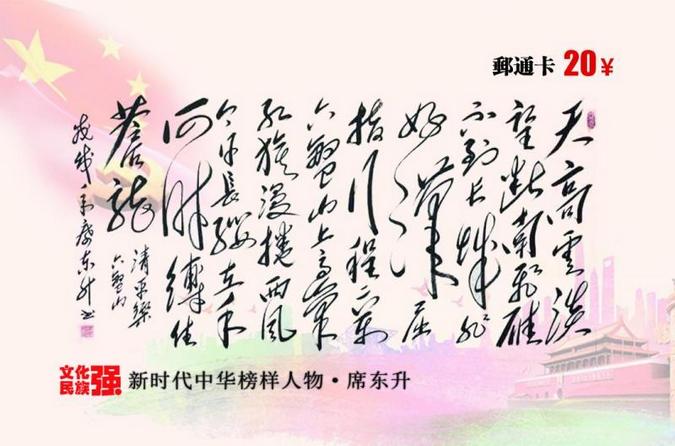 郵通卡 20¥
天高雲淡
望斷南飛雁
不到长城非
好漢屈
指行程二万
六盤山上高峰
红旗漫捲西风
今日長纓在手
何時縛住
蒼龍
清平樂
六盤山
戊戌年席东升书
文化
民族
强
新时代中华榜样人物·席东升